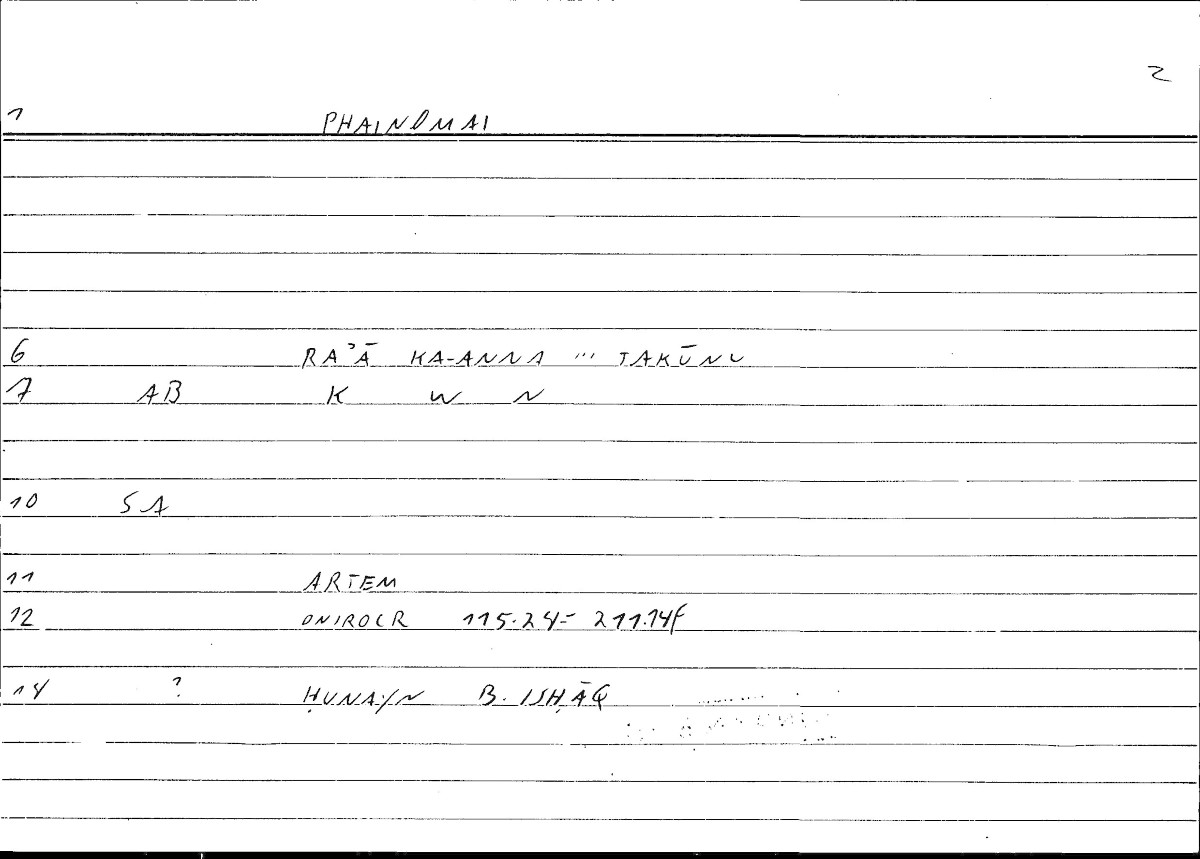 2
1 PHAINOMAI
6 RAʾĀ KA-ANNA ... TAKŪNU
7 AB K W N
10 SA
11 ARTEM
12 ONIROCR 115.24 = 211.14f
14 ? ḤUNAYN B. ISḤĀQ